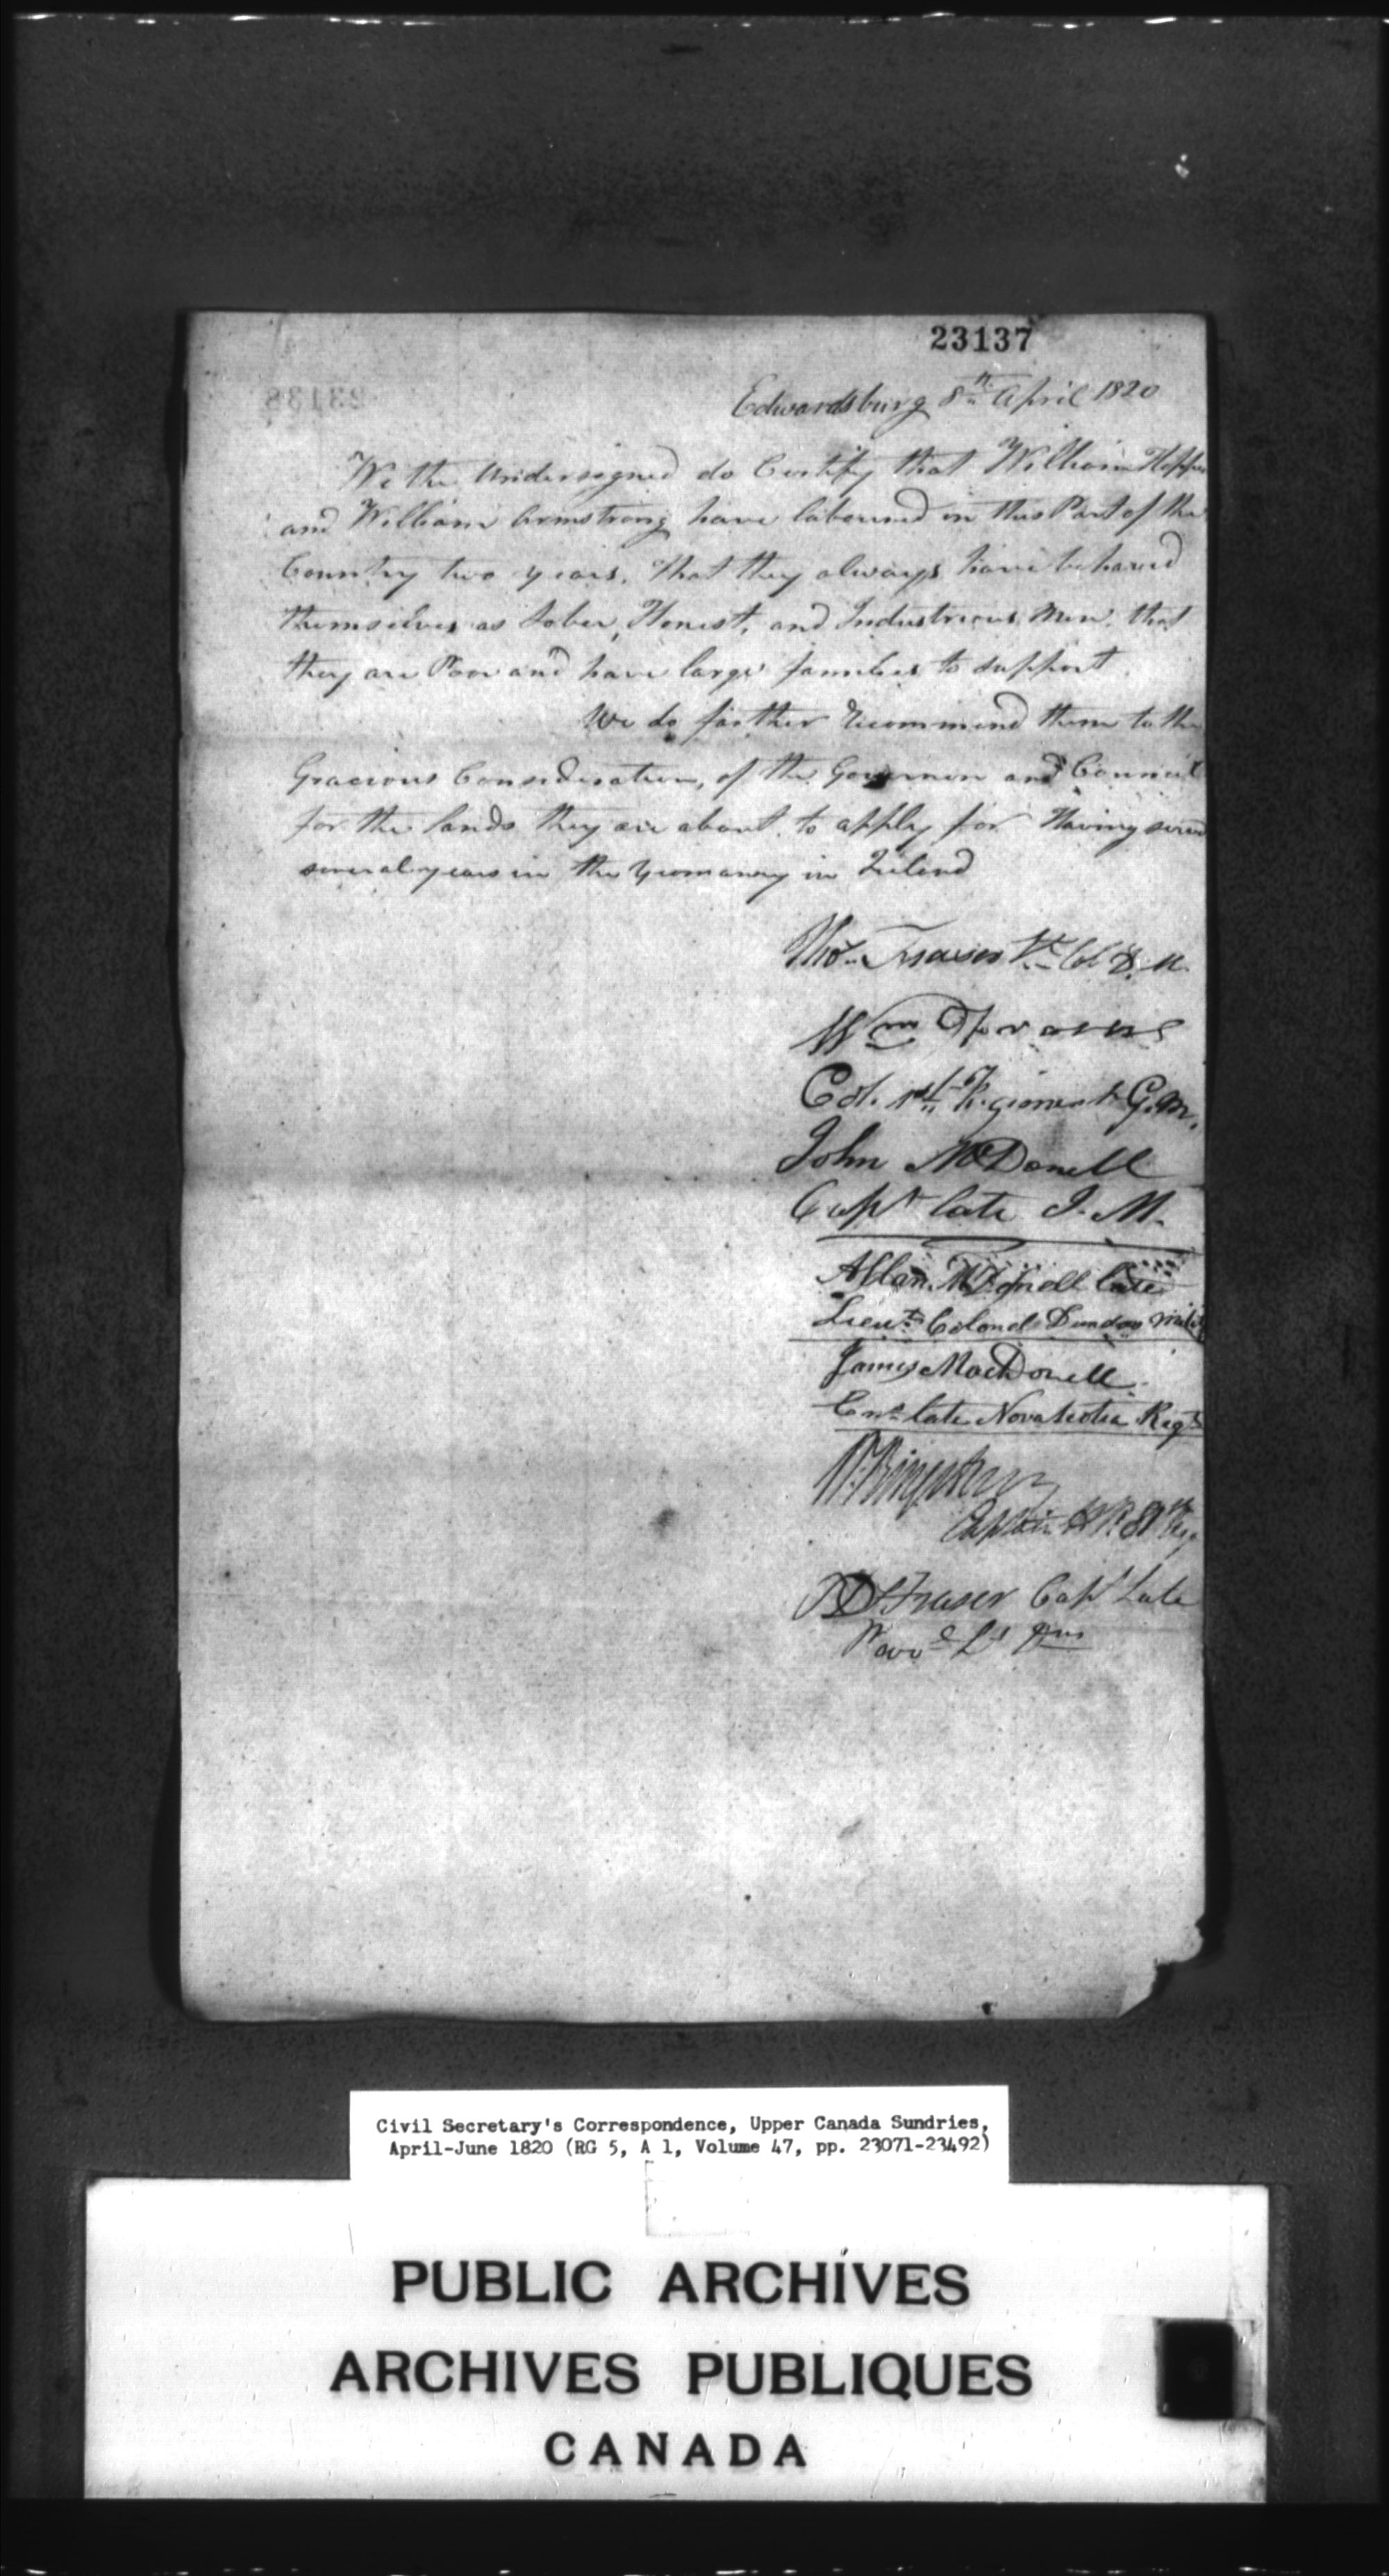 23137
Edwardsburg 8th April 1820
We the Undersigned do Certify that William
and William Armstrong have laboured in this Part of the
Country two years. that they always have behaved
themselves as Sober, Honest, and Industrious Men. that
they are Poor and have large families to support.
We do farther recommend them to the
Gracious Consideration, of the Governor and Council
for the lands they are about to apply for Having served
several years in the Yeomanry in Ireland
Thos. Fraser Lt. Col D. M.
Wm Fraser
Col. 1st Regiment G. M.
John McDonell
Capt late I. M.
Allan McDonell late
Lieut. Colonel Dundas Mili
James MacDonell
Ens. late Nova Scotia Regt
Captain
R D Fraser Capt Late
Prov
Civil Secretary's Correspondence, Upper Canada Sundries,
April-June 1820 (RG 5, A 1, Volume 47, pp. 23071-23492)
PUBLIC ARCHIVES
ARCHIVES PUBLIQUES
CANADA